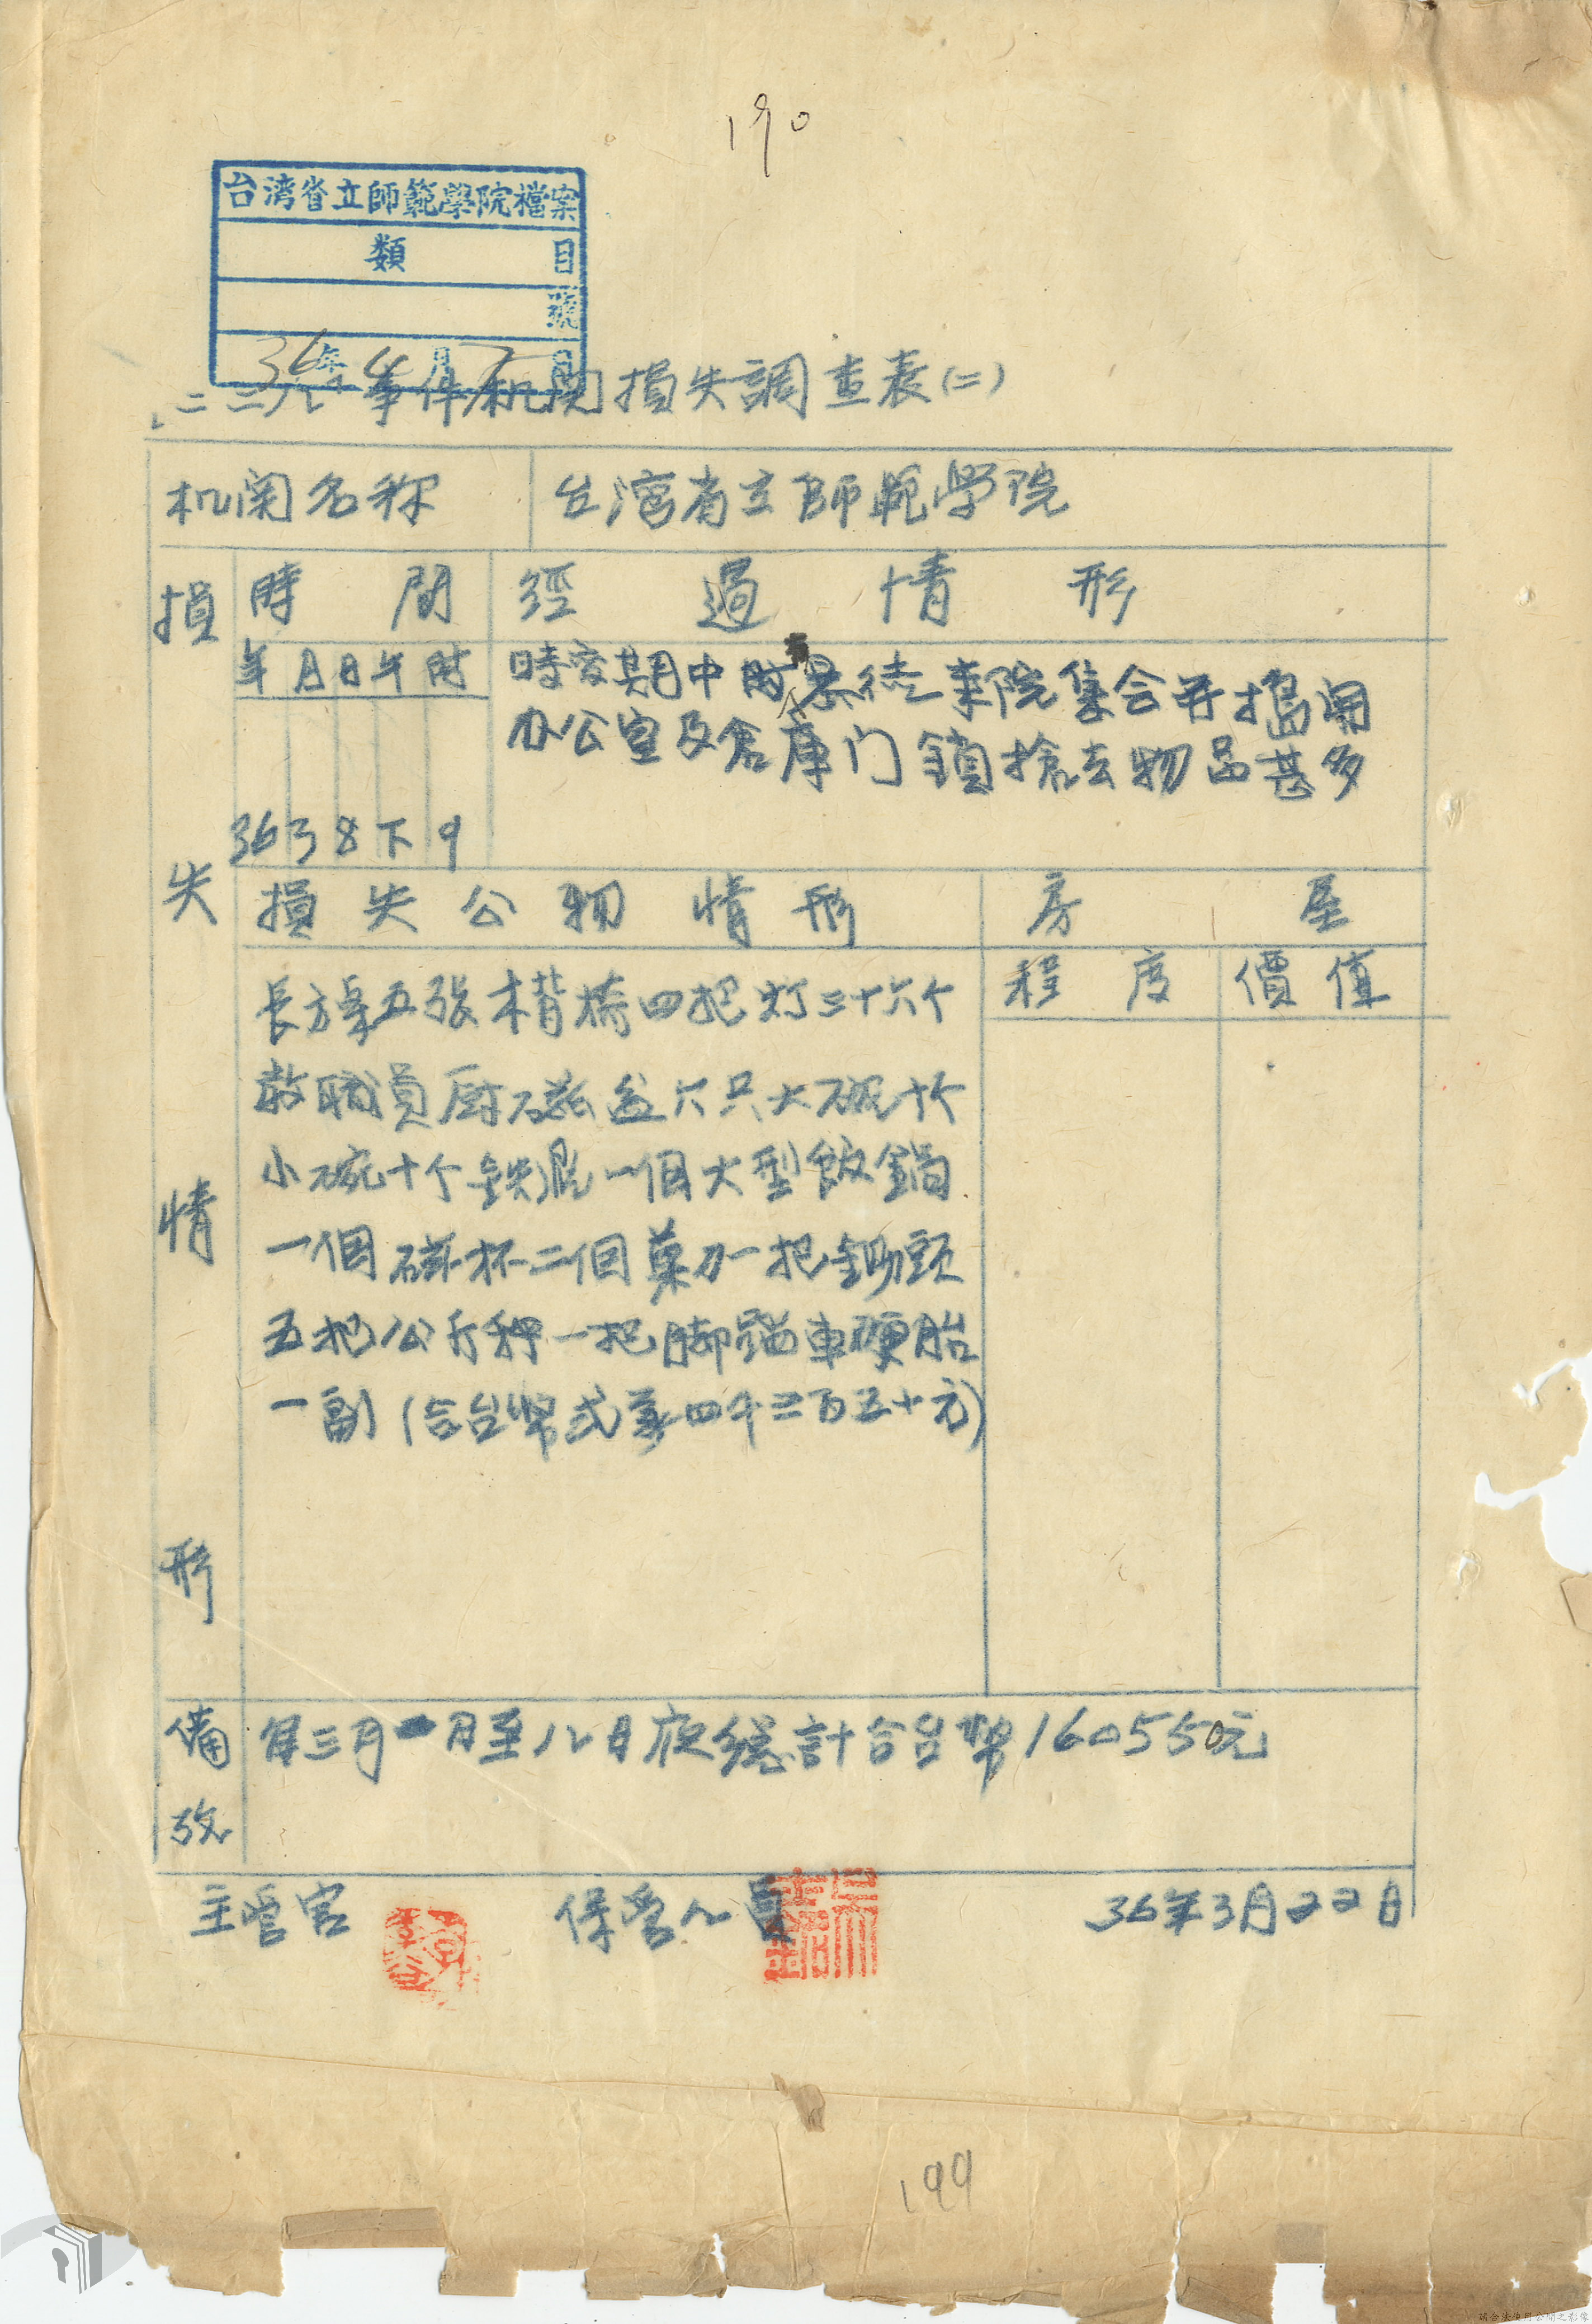 190
台湾省立師範學院檔案
類 目
號
36年4月 日
「二二八」事件机関損失調查表(二)
机関名称 台湾省立師範學院
損失情形
時間 經過情形
年月日午时
36 3 8 下 9
時变期中时暴徒来院集合并搗開
办公室及倉庫门鎖搶去物品甚多
損失公物情形 房屋
程度 價值
長方桌五張木背椅四把灯三十六个
教職員厨磁盆六只大碗十个
小碗十个鉄 一個大型飯鍋
一個磁杯二個菜刀一把鋤頭
五把公斤秤一把脚踏車硬胎
一副(合台幣弍萬四千三百五十元)
備攷
自三月 日至八日夜總計合台幣160550元
主管官 保管人員 36年3月22日
199
請合法使用公開之影像